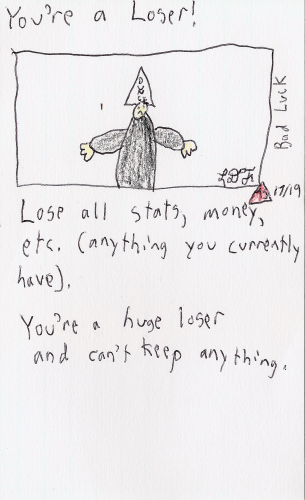 You're a Loser!
DUNCE
Bad Luck
17/19
Lose all stats, money,
etc. (anything you currently
have).
You're a huge loser
and can't keep anything.